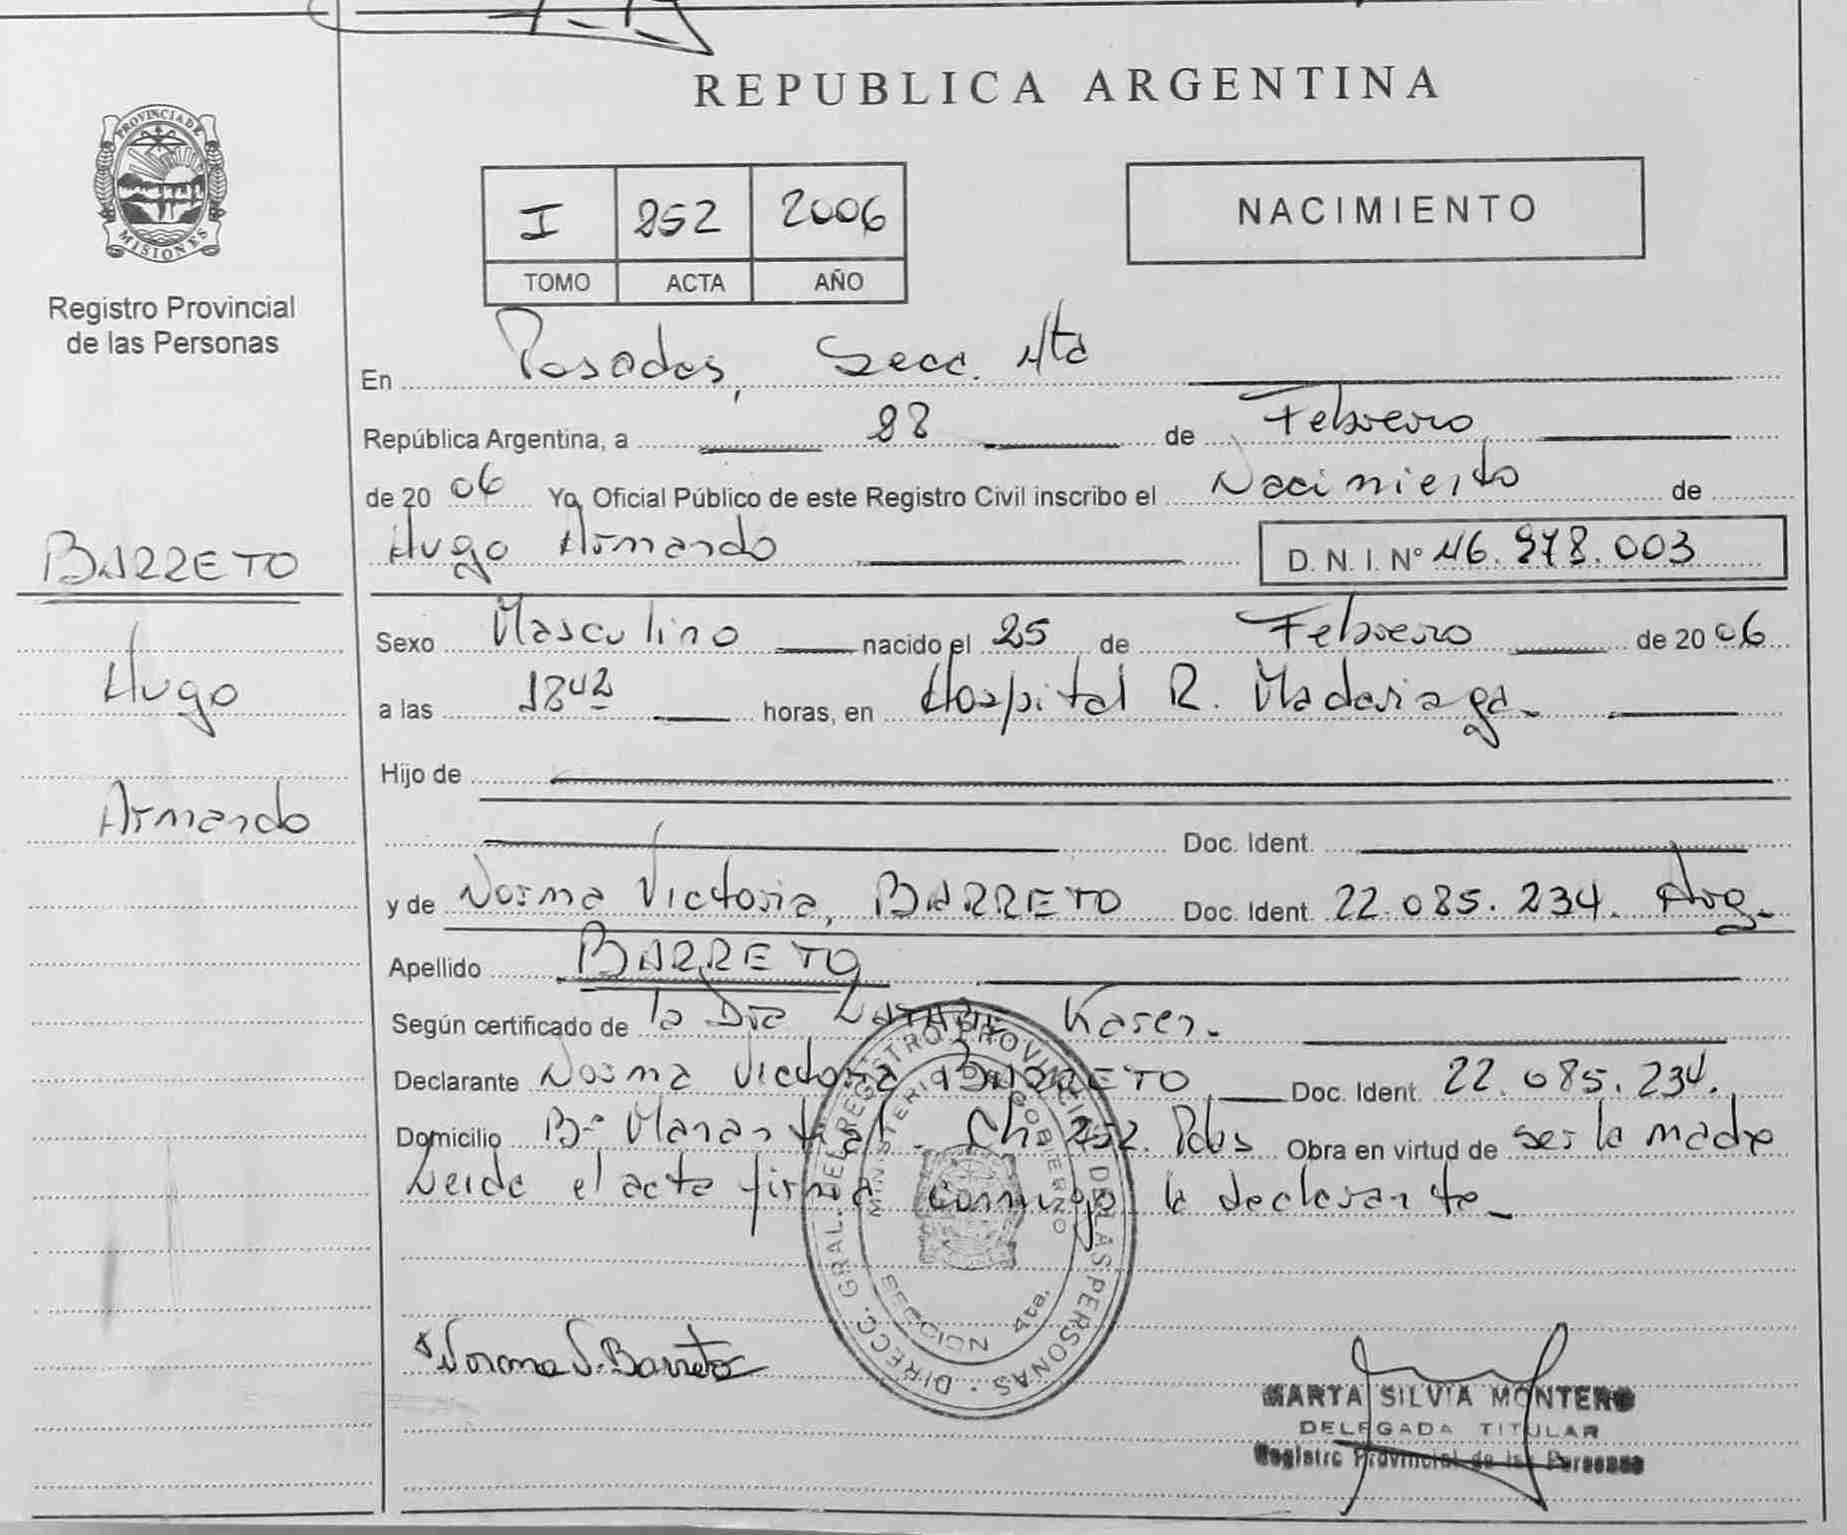 REPUBLICA ARGENTINA
PROVINCIA DE MISIONES
Registro Provincial
de las Personas
I 252 2006
TOMO ACTA AÑO
NACIMIENTO
En Posadas, Secc. 4ta
República Argentina, a 28 de Febrero
de 2006 Yo, Oficial Público de este Registro Civil inscribo el Nacimiento de
Hugo Armando D. N. I. Nº 46.978.003
BARRETO
Hugo
Armando
Sexo Masculino nacido el 25 de Febrero de 2006
a las 1842 horas, en Hospital R. Madariaga.
Hijo de
Doc. Ident.
y de Norma Victoria, BARRETO Doc. Ident. 22.085.234. Arg.
Apellido BARRETO
Según certificado de la Dra Karen.
Declarante Norma Victoria BARRETO Doc. Ident. 22.085.234.
Domicilio Bº Manantial. Ch. 252. Pdas Obra en virtud de ser la madre
Leida el acta firma conmigo la declarante.
DIRECC. GRAL. DEL REGISTRO PROVINCIAL DE LAS PERSONAS
MINISTERIO DE GOBIERNO
SECCION 4ta.
Norma V. Barreto
MARTA SILVIA MONTERO
DELEGADA TITULAR
Registro Provincial de las Personas